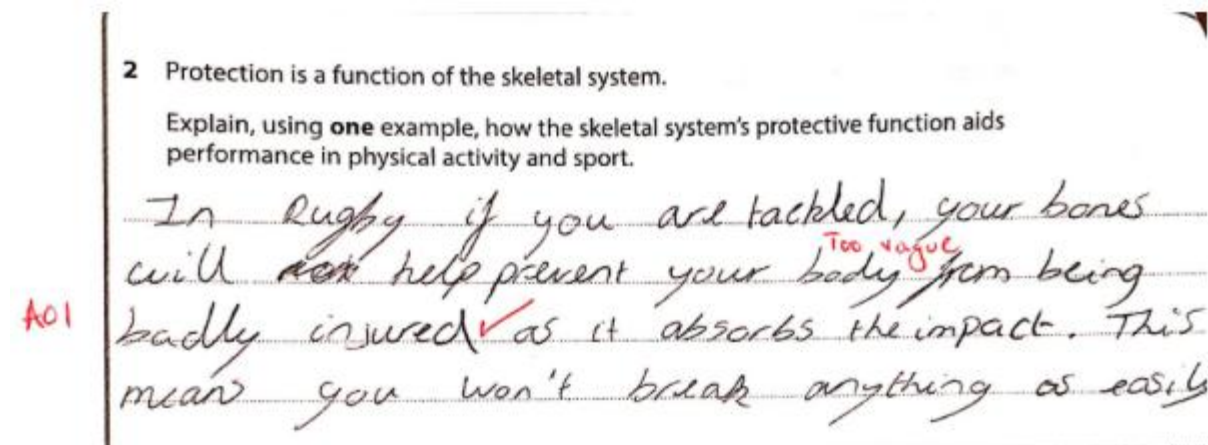 2 Protection is a function of the skeletal system.
Explain, using one example, how the skeletal system's protective function aids
performance in physical activity and sport.
In Rugby if you are tackled, your bones
Too vague
will help prevent your body from being
A01 badly injured ✓ as it absorbs the impact. This
means you won't break anything as easily